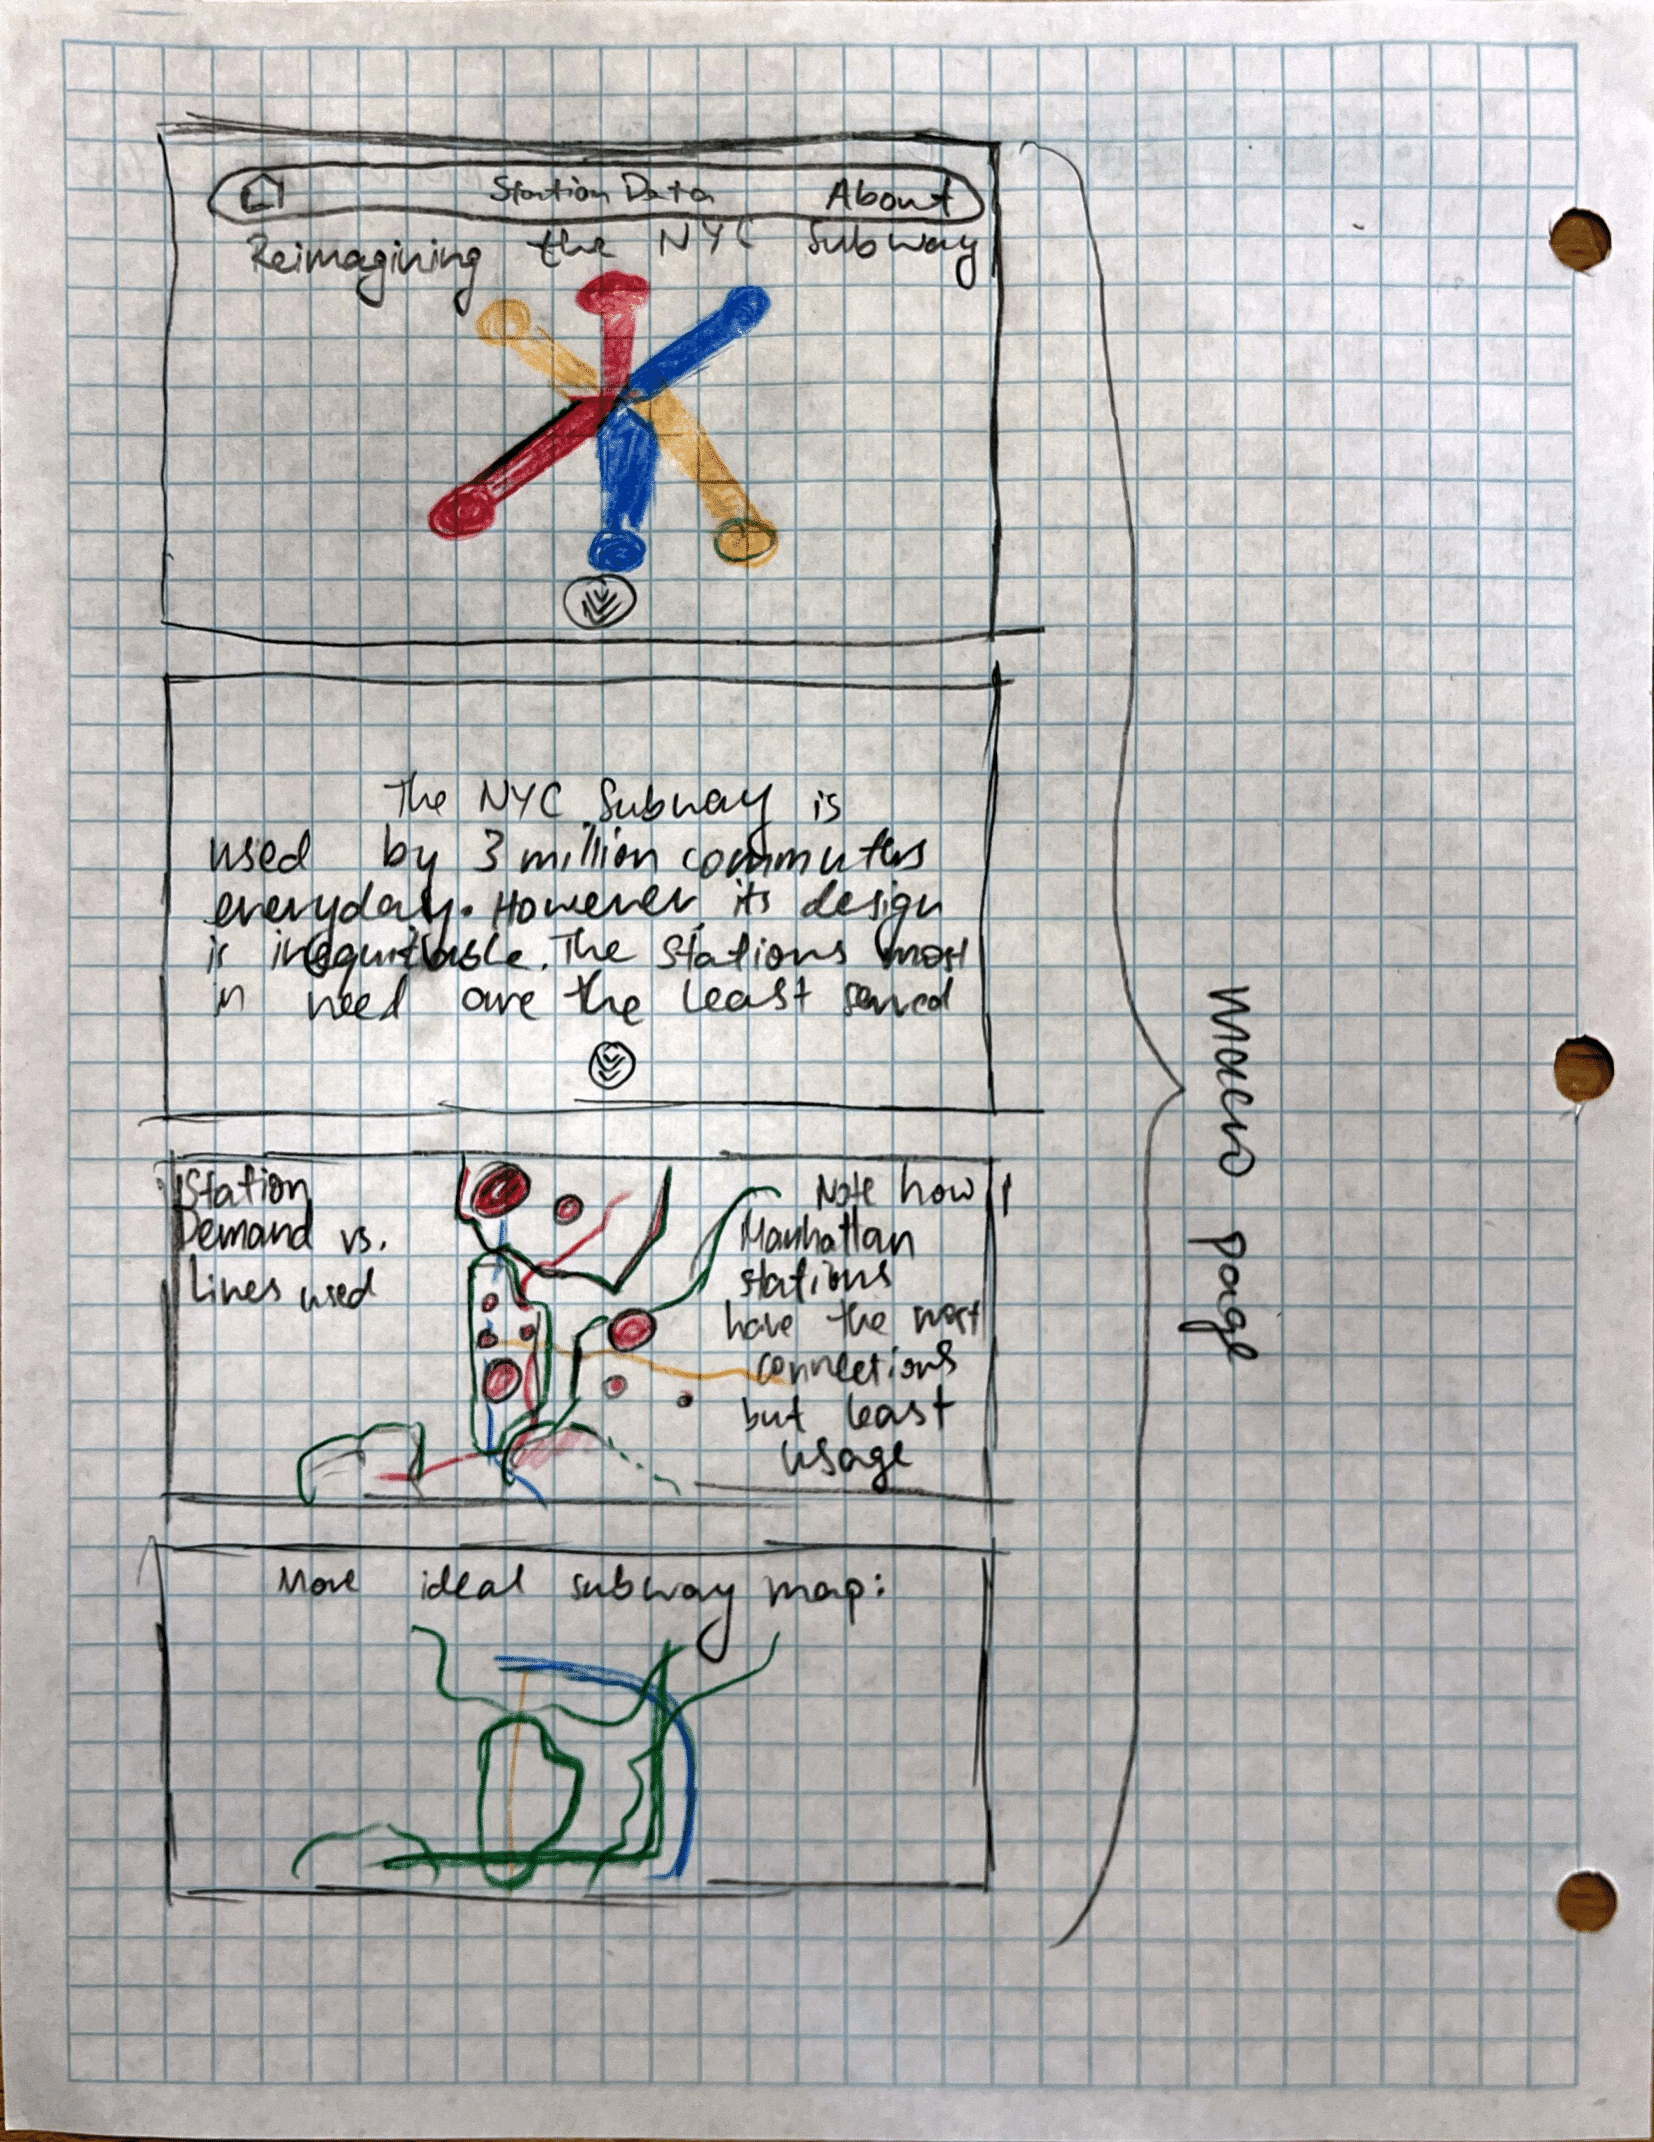 Station Data About
Reimagining the NYC Subway
The NYC Subway is
used by 3 million commuters
everyday. However, its design
is inequitable. The stations most
in need are the least served
Station
Demand vs.
Lines used
Note how
Manhattan
stations
have the most
connections
but least
usage
More ideal subway map:
Macro page